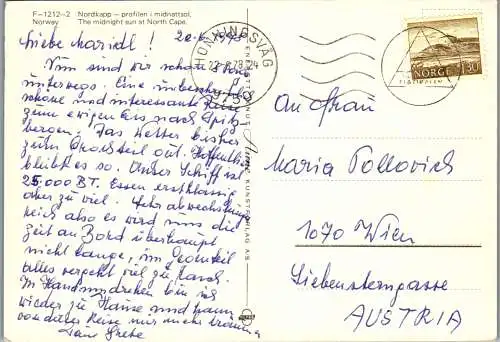 F-1212-2 Nordkapp – profilen i midnattsol,
Norway. The midnight sun at North Cape.
Liebe Maridl! 20.6.1978
Nun sind wir schon
unterwegs. Eine unbeschr.
schöne und interessante Reise
zum ewigen Eis nach Spitz
bergen. Das Wetter bisher
zum Großteil gut. Hoffentlich
bleibt es so. Unser Schiff ist
25.000 BT. Essen erstklassig
aber zu viel. Sehr abwechslungs
reich also es wird uns die
Zeit an Bord überhaupt
nicht lange, im Gegenteil
alles vergeht viel zu rasch.
Im Handumdrehen bin ich
wieder zu Hause und kann
von dieser Reise nur mehr träumen
Deine Grete
HONNINGSVÅG
9750
NORGE
30
ENERETT
KUNSTFORLAG AS
An Frau
Maria
1070 Wien
Siebensterngasse
AUSTRIA